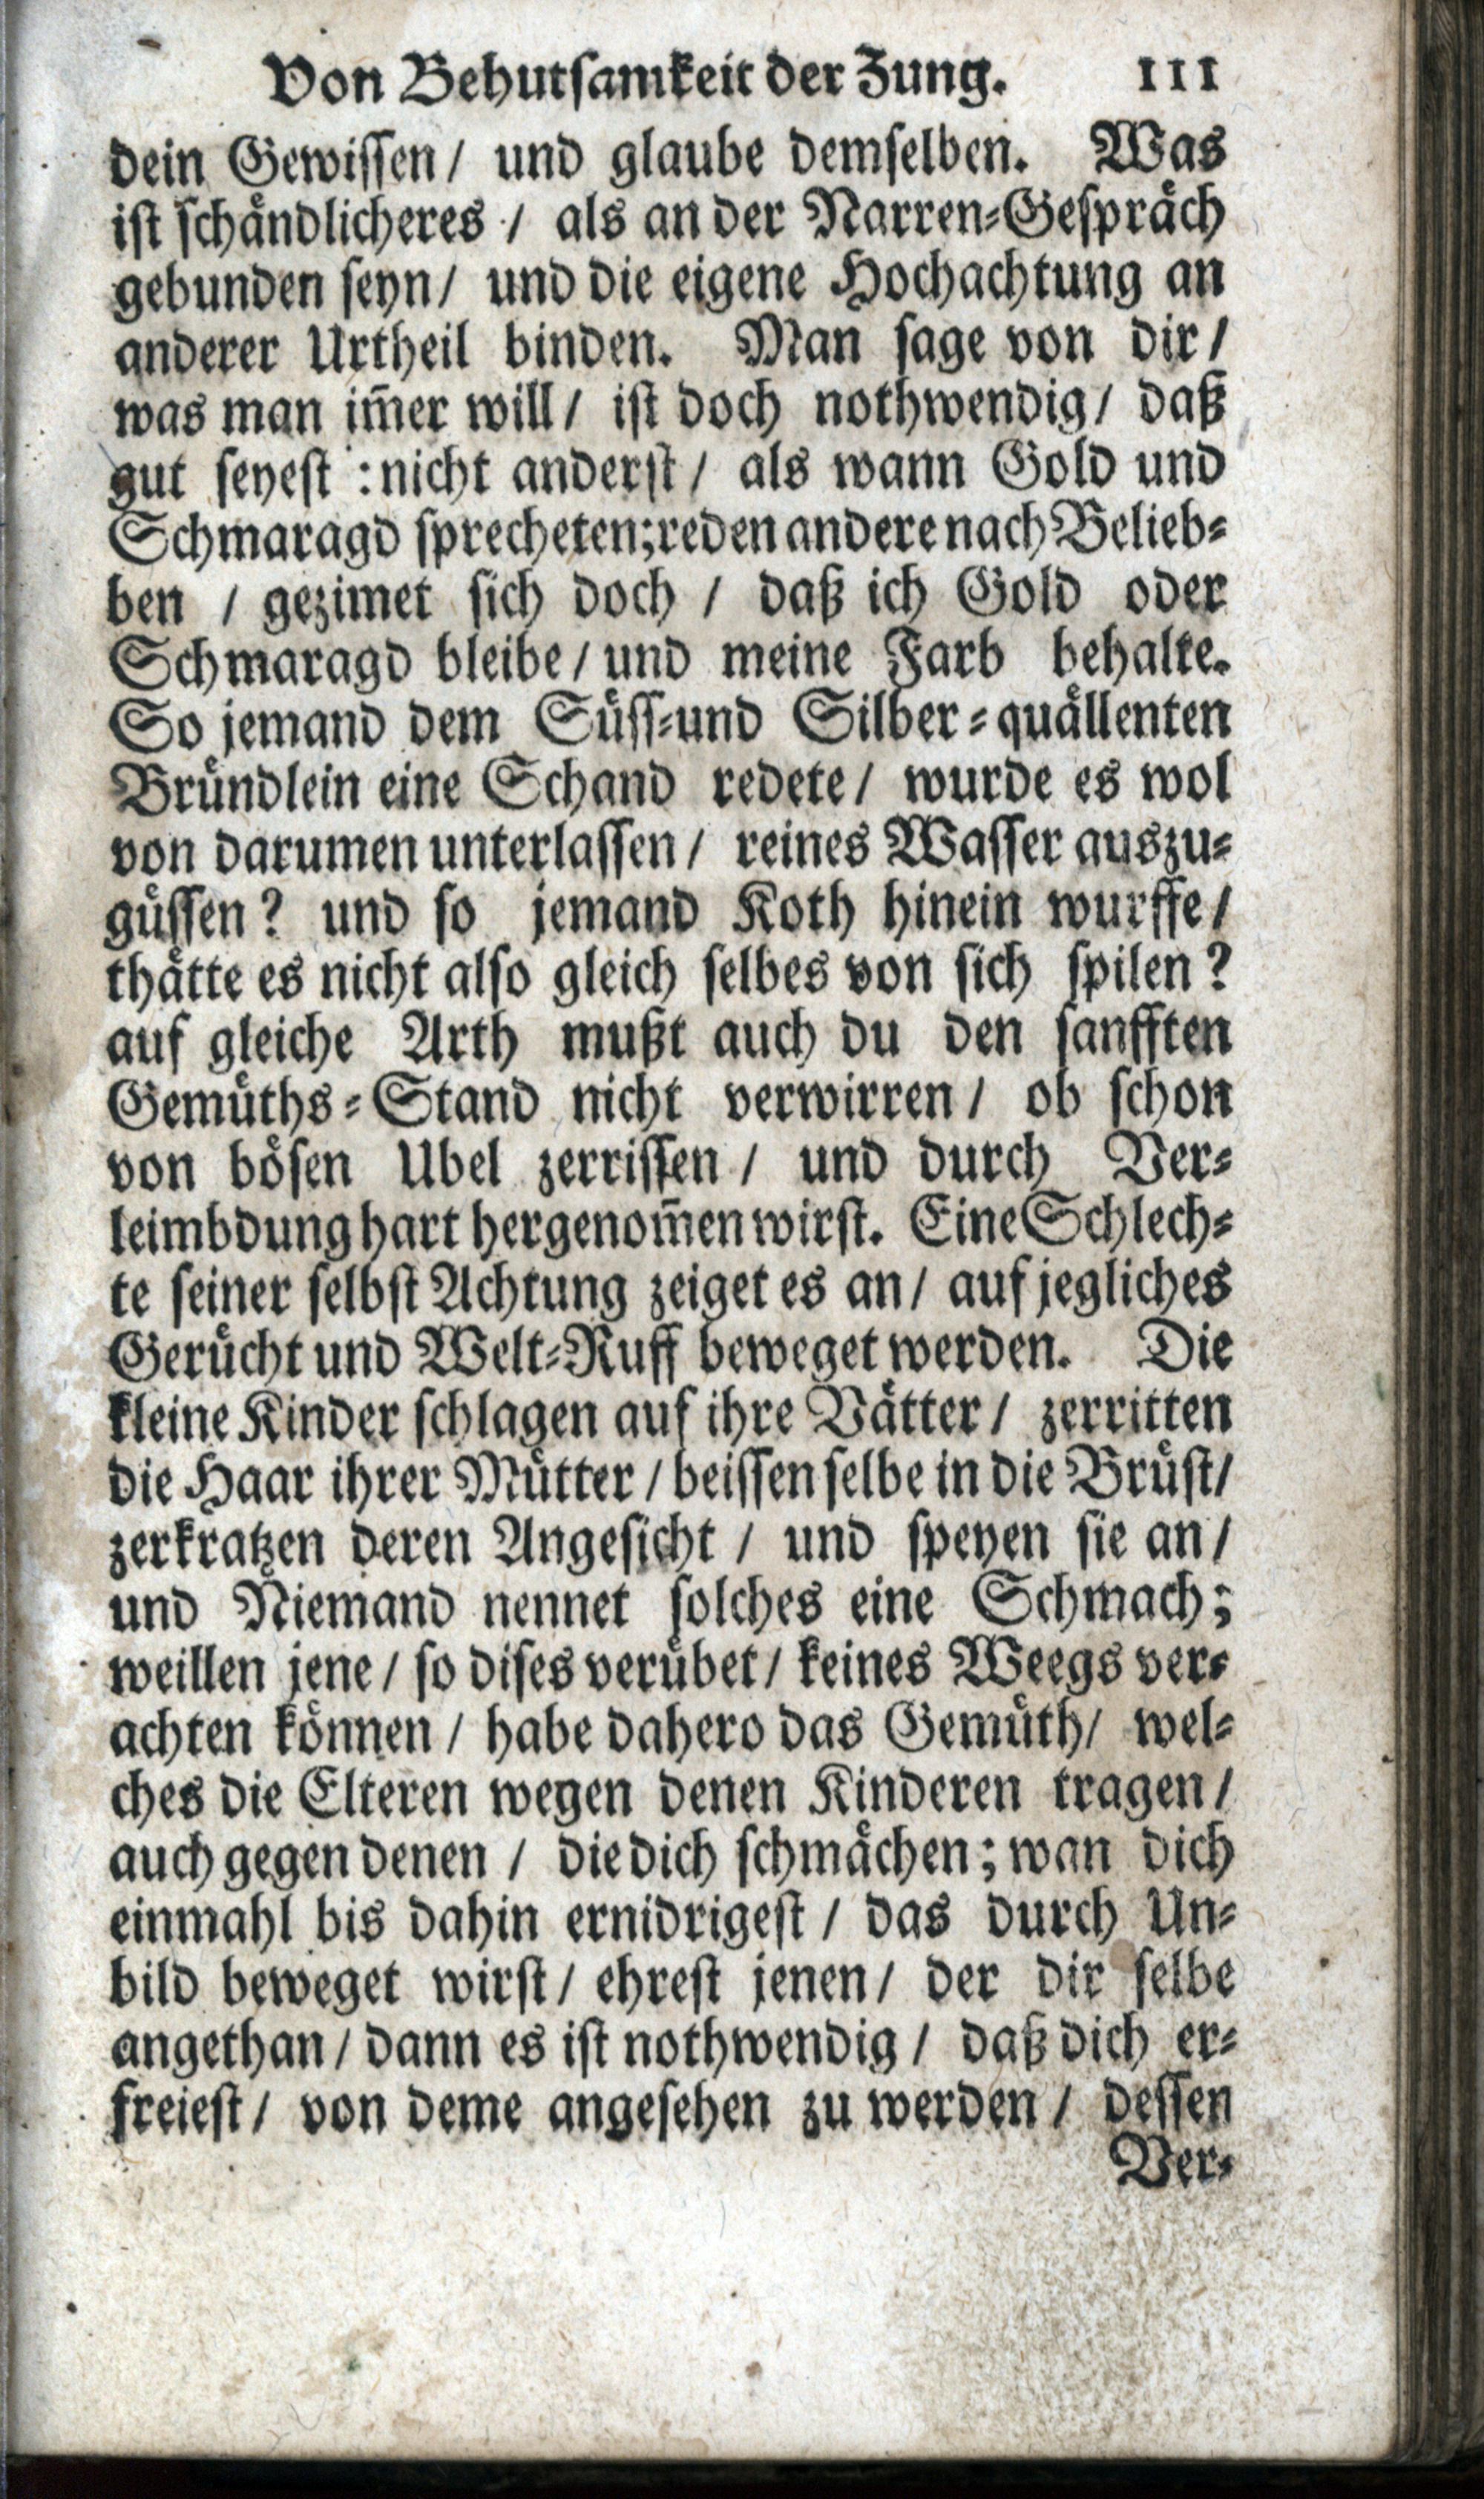 Von Behutsamkeit der Zung. 111
dein Gewissen / und glaube demselben. Was
ist schändlicheres / als an der Narren-Gespräch
gebunden seyn / und die eigene Hochachtung an
anderer Urtheil binden. Man sage von dir /
was man im̄er will / ist doch nothwendig / daß
gut seyest : nicht anderst / als wann Gold und
Schmaragd sprecheten; reden andere nach Belieb-
ben / gezimet sich doch / daß ich Gold oder
Schmaragd bleibe / und meine Farb behalte.
So jemand dem Süss-und Silber-quällenten
Bründlein eine Schand redete / wurde es wol
von darumen unterlassen / reines Wasser auszu-
güssen? und so jemand Koth hinein wurffe /
thätte es nicht also gleich selbes von sich spilen?
auf gleiche Arth mußt auch du den sanfften
Gemüths-Stand nicht verwirren / ob schon
von bösen Ubel zerrissen / und durch Ver-
leimbdung hart hergenom̄en wirst. Eine Schlech-
te seiner selbst Achtung zeiget es an / auf jegliches
Gerücht und Welt-Ruff beweget werden. Die
kleine Kinder schlagen auf ihre Vätter / zerritten
die Haar ihrer Mütter / beissen selbe in die Brüst /
zerkratzen deren Angesicht / und speyen sie an /
und Niemand nennet solches eine Schmach;
weillen jene / so dises verübet / keines Weegs ver-
achten können / habe dahero das Gemüth / wel-
ches die Elteren wegen denen Kinderen tragen /
auch gegen denen / die dich schmächen; wan dich
einmahl bis dahin ernidrigest / das durch Un-
bild beweget wirst / ehrest jenen / der dir selbe
angethan / dann es ist nothwendig / daß dich er-
freiest / von deme angesehen zu werden / dessen
Ver-